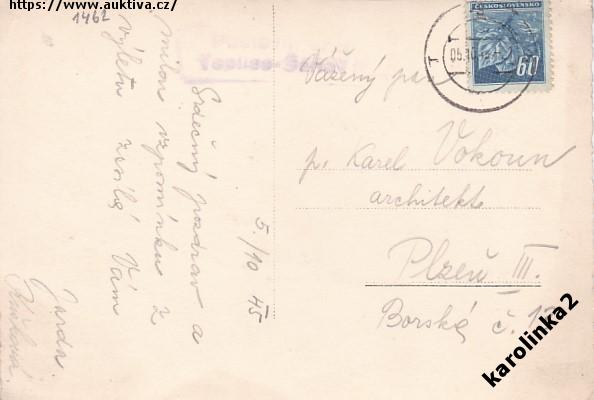 https://www.auktiva.cz/
1462
Srdečný pozdrav a
milou vzpomínku z
výletu zasílá Vám
Jarda
5./10 45
Teplice-Šanov
ČESKOSLOVENSKO
60
Vážený pan
p. Karel Vokoun
architekt
Plzeň III.
Borská č.
karolinka2